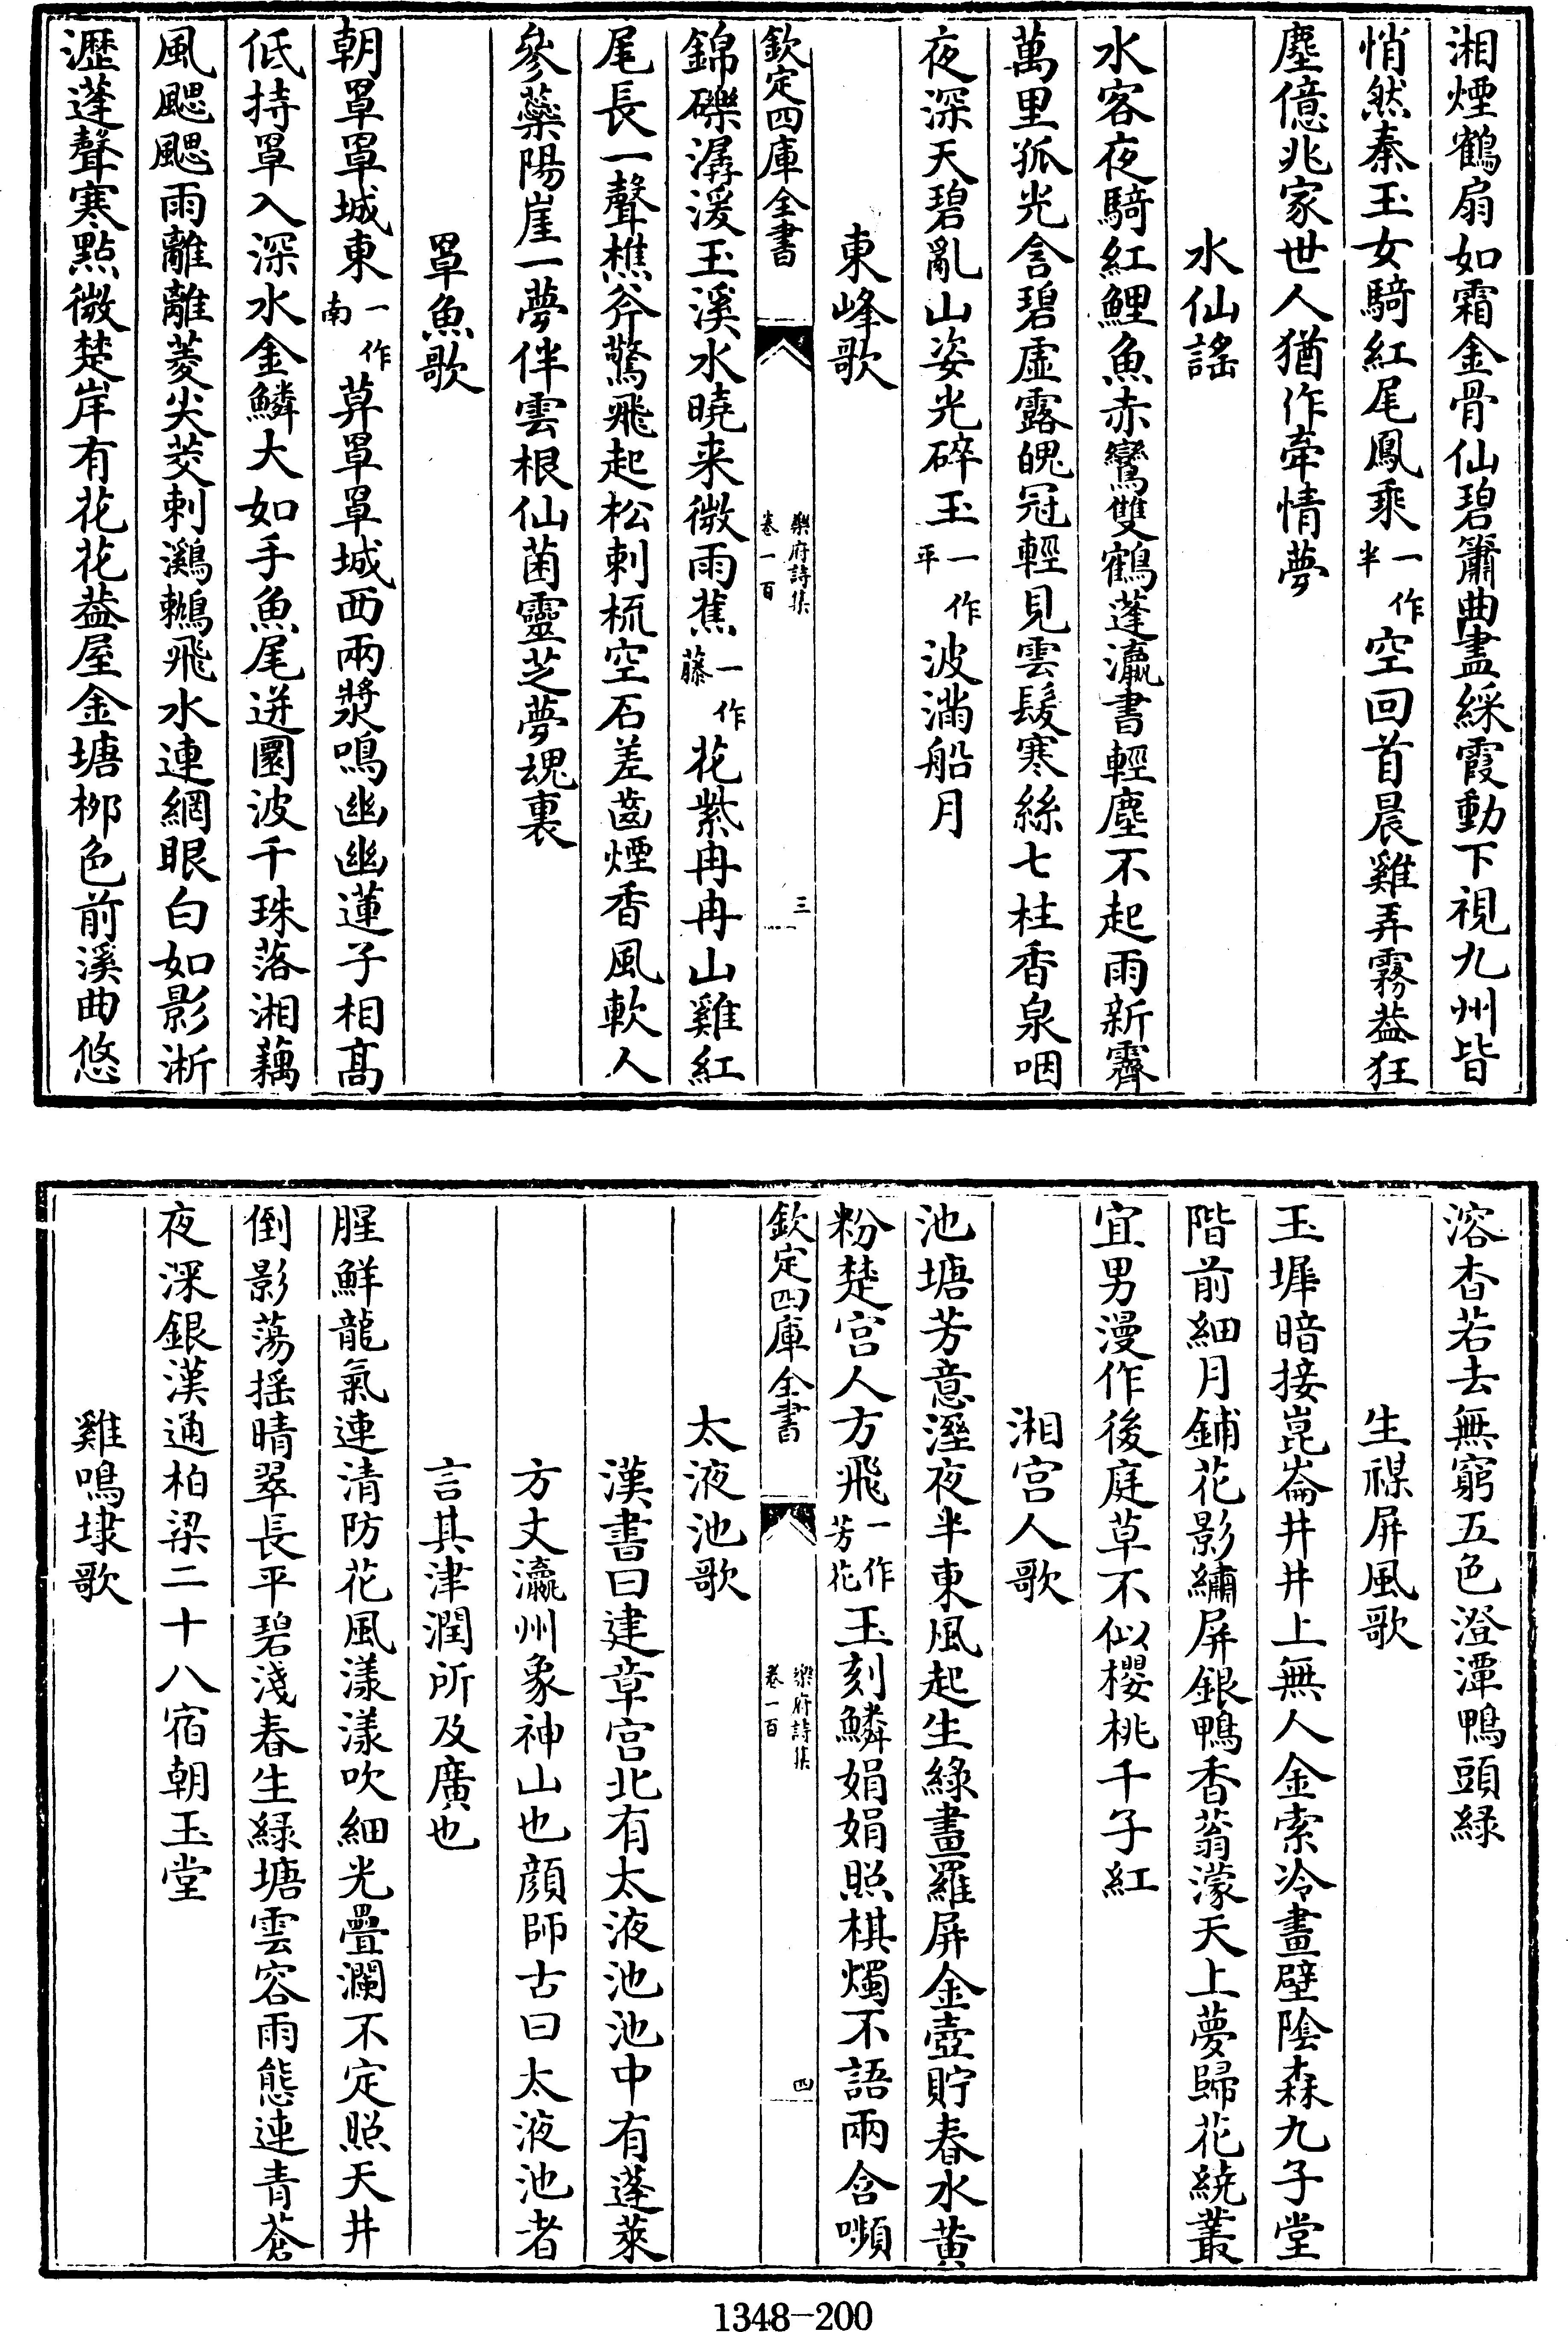 湘煙鶴扇如霜金骨仙碧簫曲盡綵霞動下視九州皆
悄然秦玉女騎紅尾鳳乘一作半空回首晨雞弄霧蓋狂
塵億兆家世人猶作牽情夢
水仙謠
水客夜騎紅鯉魚赤鸞雙鶴蓬瀛書輕塵不起雨新霽
萬里孤光含碧虛露魄冠輕見雲髮寒絲七柱香泉咽
夜深天碧亂山姿光碎玉一作平波滿船月
東峰歌
欽定四庫全書
樂府詩集
卷一百
三
錦礫潺湲玉溪水曉来微雨蕉一作藤花紫冉冉山雞紅
尾長一聲樵斧驚飛起松刺梳空石差齒煙香風軟人
參蘂陽崖一夢伴雲根仙菌靈芝夢魂裏
罩魚歌
朝罩罩城東一作南莫罩罩城西兩槳鳴幽幽蓮子相髙
低持罩入深水金鱗大如手魚尾迸圓波千珠落湘藕
風颸颸雨離離菱尖茭刺鸂鶒飛水連網眼白如影淅
瀝蓬聲寒點微楚岸有花花蓋屋金塘栁色前溪曲悠
溶杳若去無窮五色澄潭鴨頭緑
生禖屏風歌
玉墀暗接崑崙井井上無人金索冷畫壁陰森九子堂
階前細月鋪花影繡屏銀鴨香蓊濛天上夢歸花繞叢
宜男漫作後庭草不似櫻桃千子紅
湘宫人歌
池塘芳意溼夜半東風起生綠畫羅屏金壺貯春水黄
粉楚宫人方飛一作芳花玉刻鱗娟娟照棋燭不語兩含嚬
欽定四庫全書
樂府詩集
卷一百
四
太液池歌
漢書曰建章宫北有太液池池中有蓬萊
方丈瀛州象神山也顔師古曰太液池者
言其津潤所及廣也
腥鮮龍氣連清防花風漾漾吹細光疊瀾不定照天井
倒影蕩揺晴翠長平碧淺春生緑塘雲容雨態連青蒼
夜深銀漢通柏梁二十八宿朝玉堂
雞鳴埭歌
1348-200